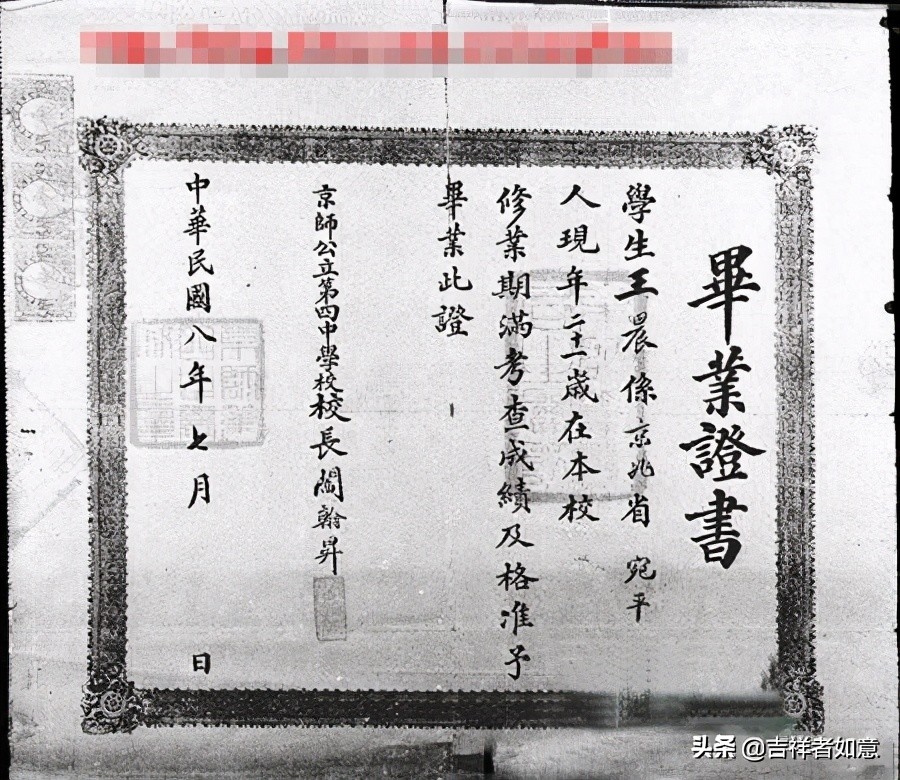 畢業證書
學生王晨係京兆省 宛平
人現年二十一歲在本校
修業期滿考查成績及格准予
畢業此證
京師公立第四中學校校長閻翰昇
中華民國八年七月 日
头条 @吉祥者如意